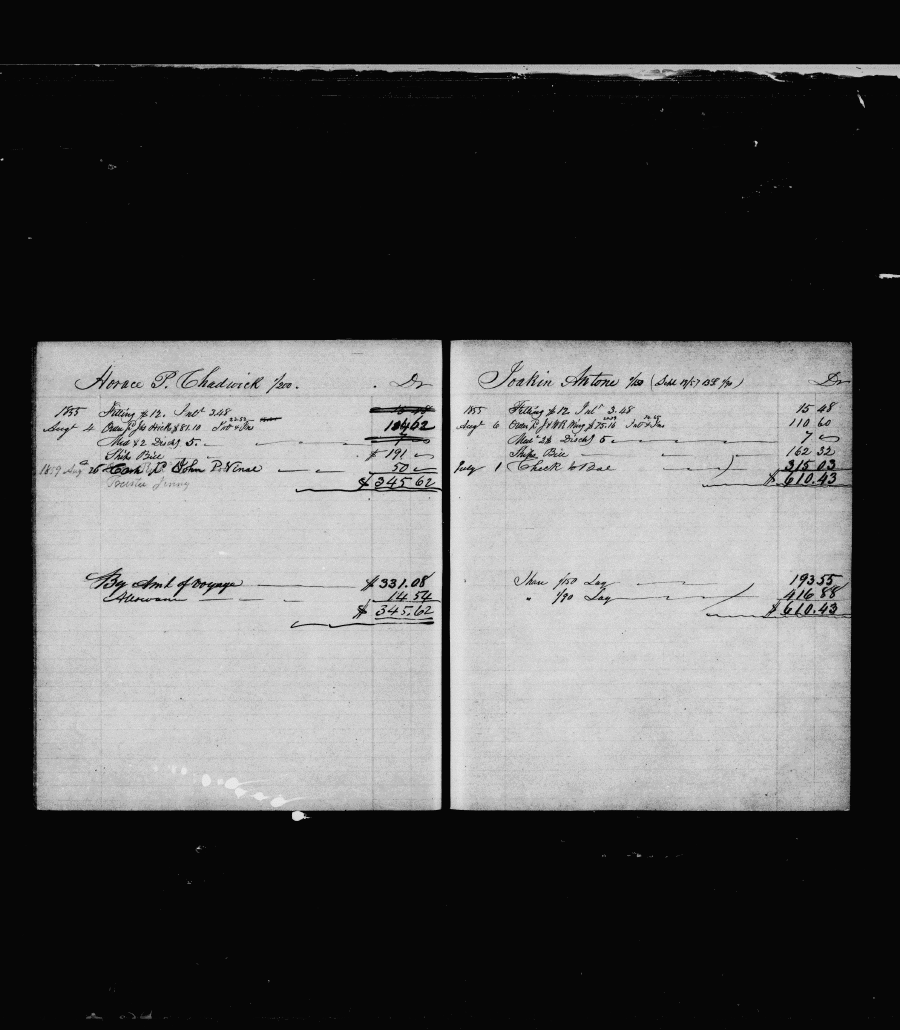 Horace P. Chadwick 1/200. Dr
1855 Fitting $12. Intt 3.48 15 48
Augt 4 $81.10 104 62
Med $2 Disch 5. 7
Ships Bill $191
1859 Aug 26 Cash pd John P. 50
$345.62
By Amt of voyage $331.08
Allowance 14.54
$345.62
Joakin Antone 1/150 Dr
1855 Fitting $12 Intt 3.48 15 48
Augt 6 $75.16 110 60
Med 2$ Disch 5 7
Ships Bill 162 32
July 1 Check to Bal 315 03
$610.43
Share 1/150 Lay 193 55
" 1/90 Lay 416 88
$610.43